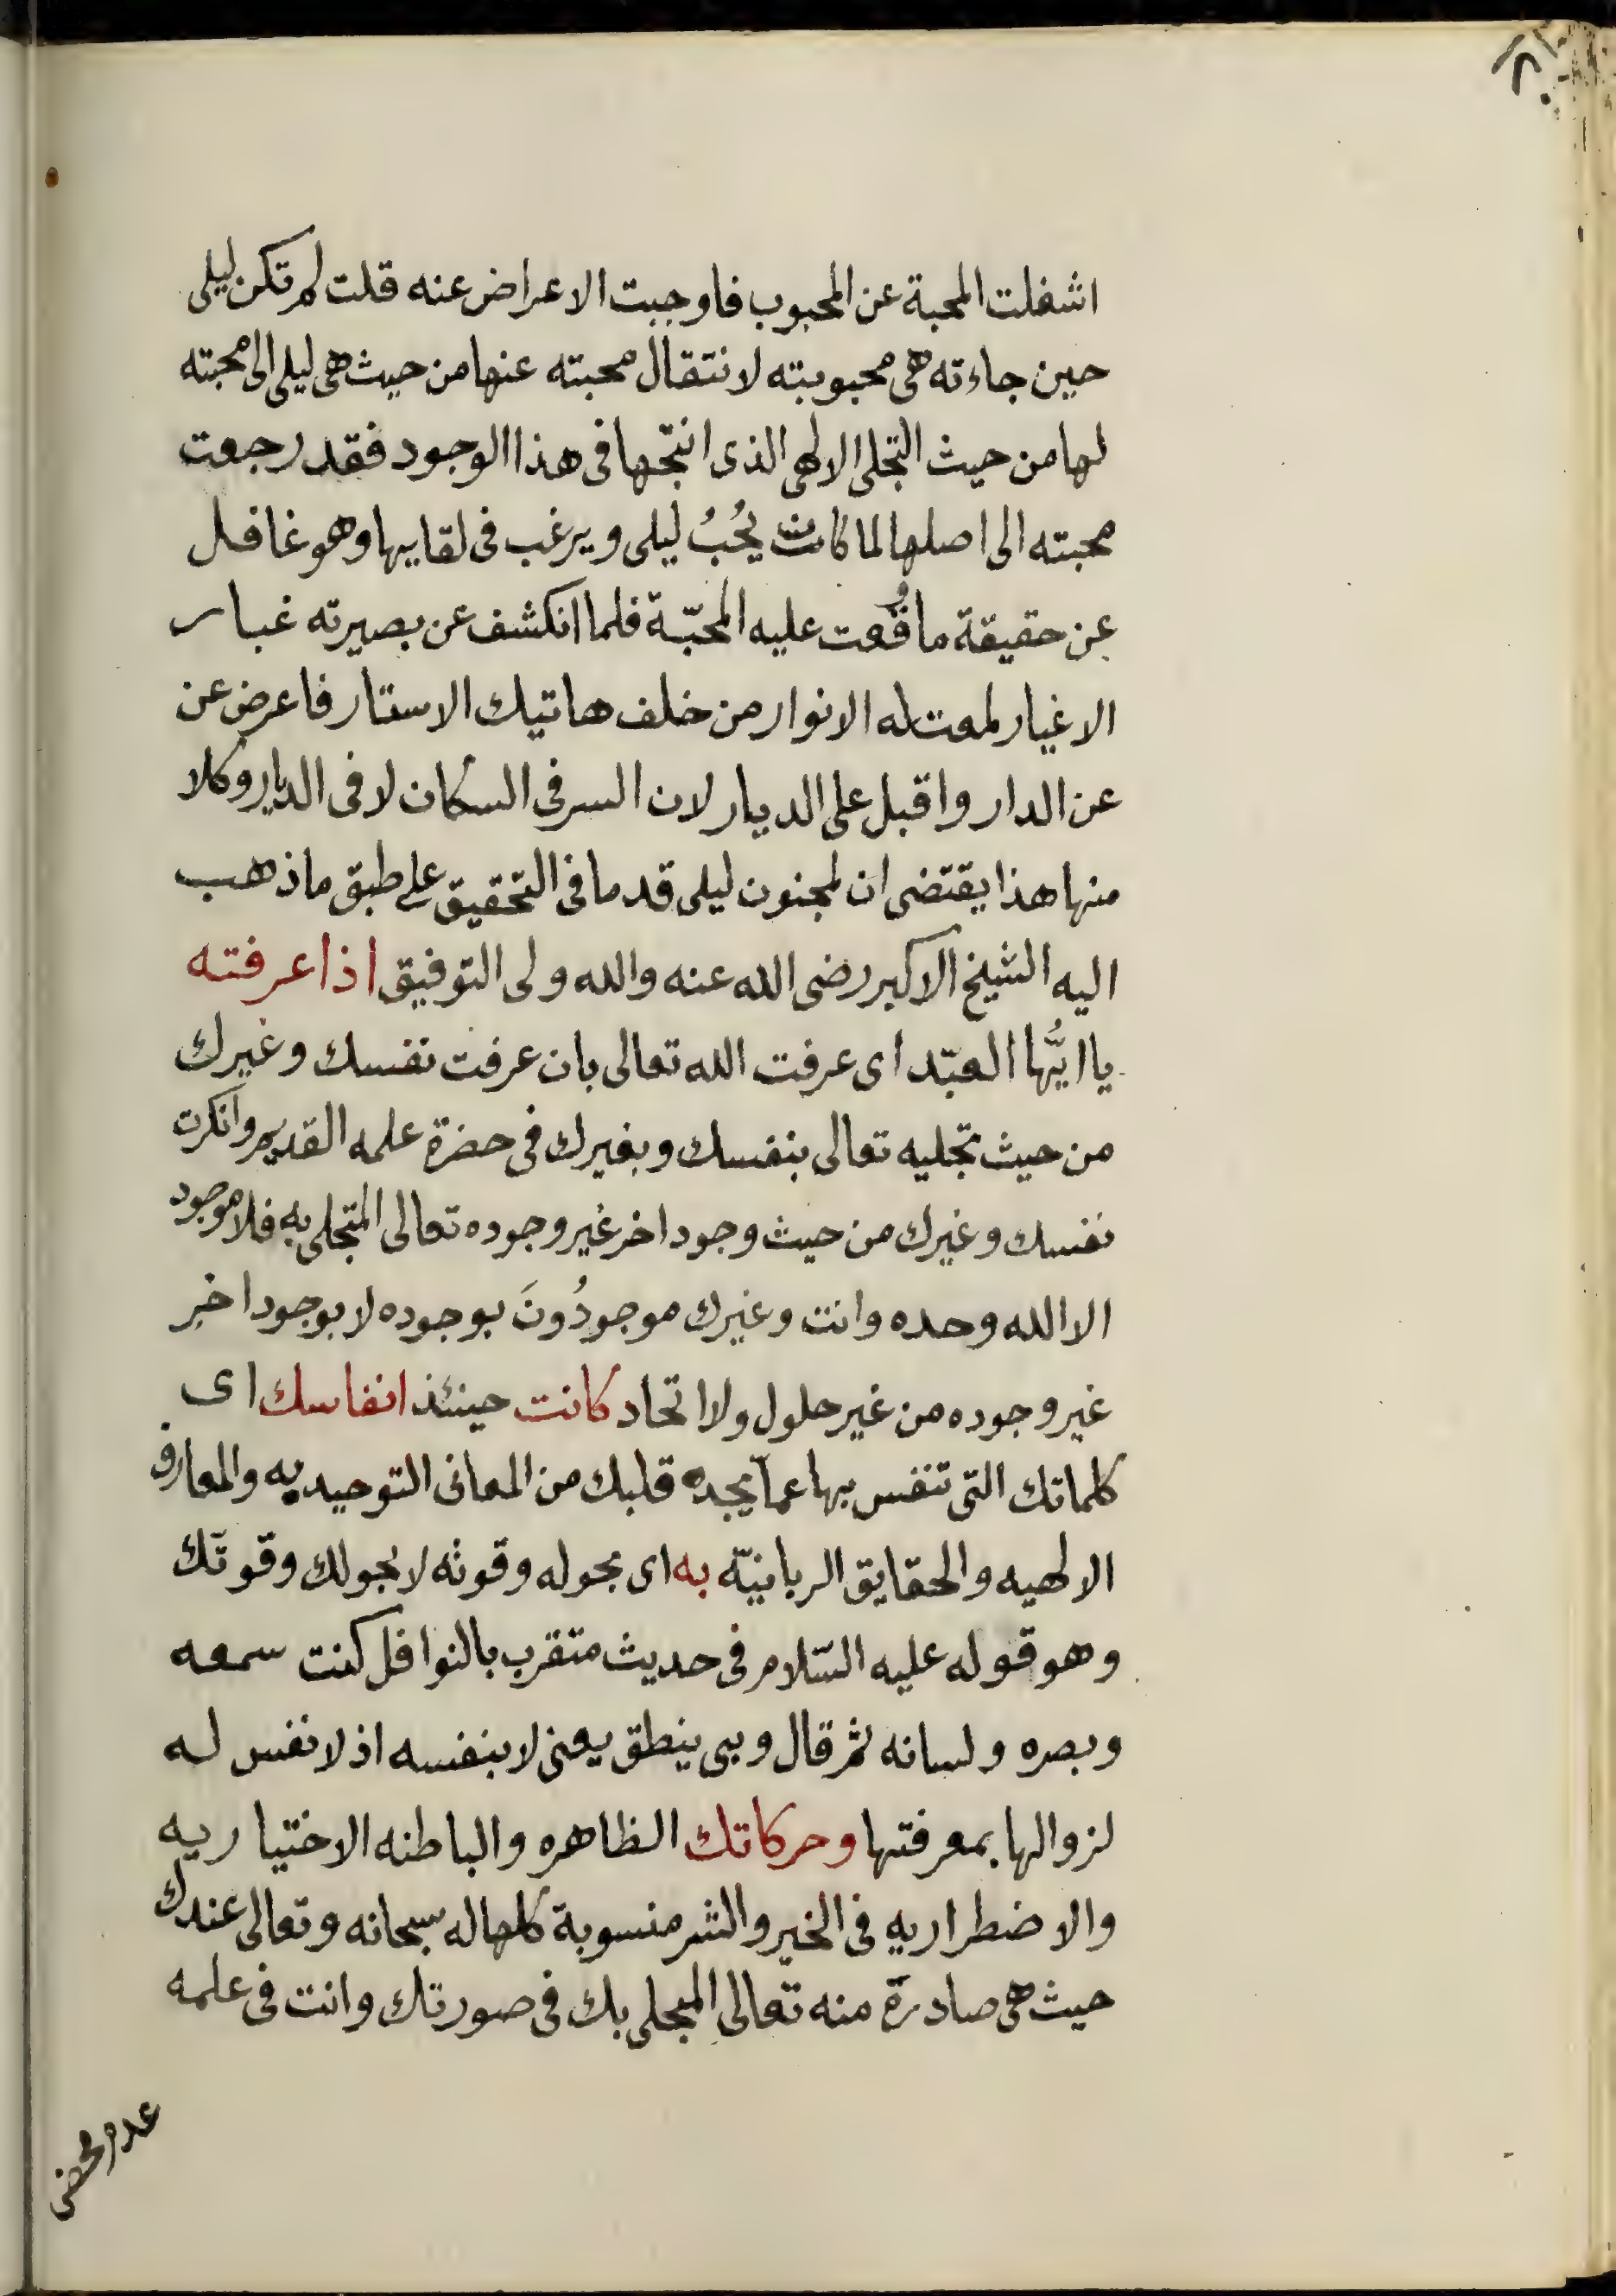 اشغلت المحبة عن المحبوب فاوجبت الاعراض عنه قلت لم تكن ليلى
حين جاءته هى محبوبته لانتقال محبته عنها من حيث هى ليلى الى محبته
لها من حيث التجلى الالهى الذى انتجها فى هذا الوجود فقد رجعت
محبته الى اصلها لما كانت يُحبُ ليلى ويرغب فى لقايها وهو غافل
عن حقيقة ما وُقعت عليه المحبّة فلما انكشف عن بصيرته غبار
الاغيار لمعت له الانوار من خلف هاتيك الاستار فاعرض عن
عن الدار واقبل على الديار لان السر فى السكان لا فى الديار وكلا
منها هذا يقتضى ان لمجنون ليلى قدما فى التحقيق على طبق ما ذهب
اليه الشيخ الاكبر رضى الله عنه والله ولى التوفيق اذا عرفته
يا ايُّها العبّد اى عرفت الله تعالى بان عرفت نفسك وغيرك
من حيث تجليه تعالى بنفسك وبغيرك فى حضرة علمه القديم وانكرت
نفسك وغيرك من حيث وجود اخر غير وجوده تعالى المتجلى به فلا موجود
الا الله وحده وانت وغيرك موجودُونَ بوجوده لا بوجود اخر
غير وجوده من غير حلول ولا اتحاد كانت حينئذ انفاسك اى
كلماتك التى تنفس بها عمّا يجده قلبك من المعانى التوحيديه والمعارف
الالهيه والحقايق الربانيّه به اى بحوله وقوته لا بحولك وقوتك
وهو قوله عليه السّلام فى حديث متقرب بالنوافل كنت سمعه
وبصره ولسانه ثم قال وبى ينطق يعنى لا بنفسه اذ لا نفس له
لزوالها بمعرفتها وحركاتك الظاهره والباطنه الاختياريه
والاضطراريه فى الخير والشر منسوبة كلها له سبحانه وتعالى عندك
حيث هى صادرة منه تعالى المتجلى بك فى صورتك وانت فى علمه
عدم محض